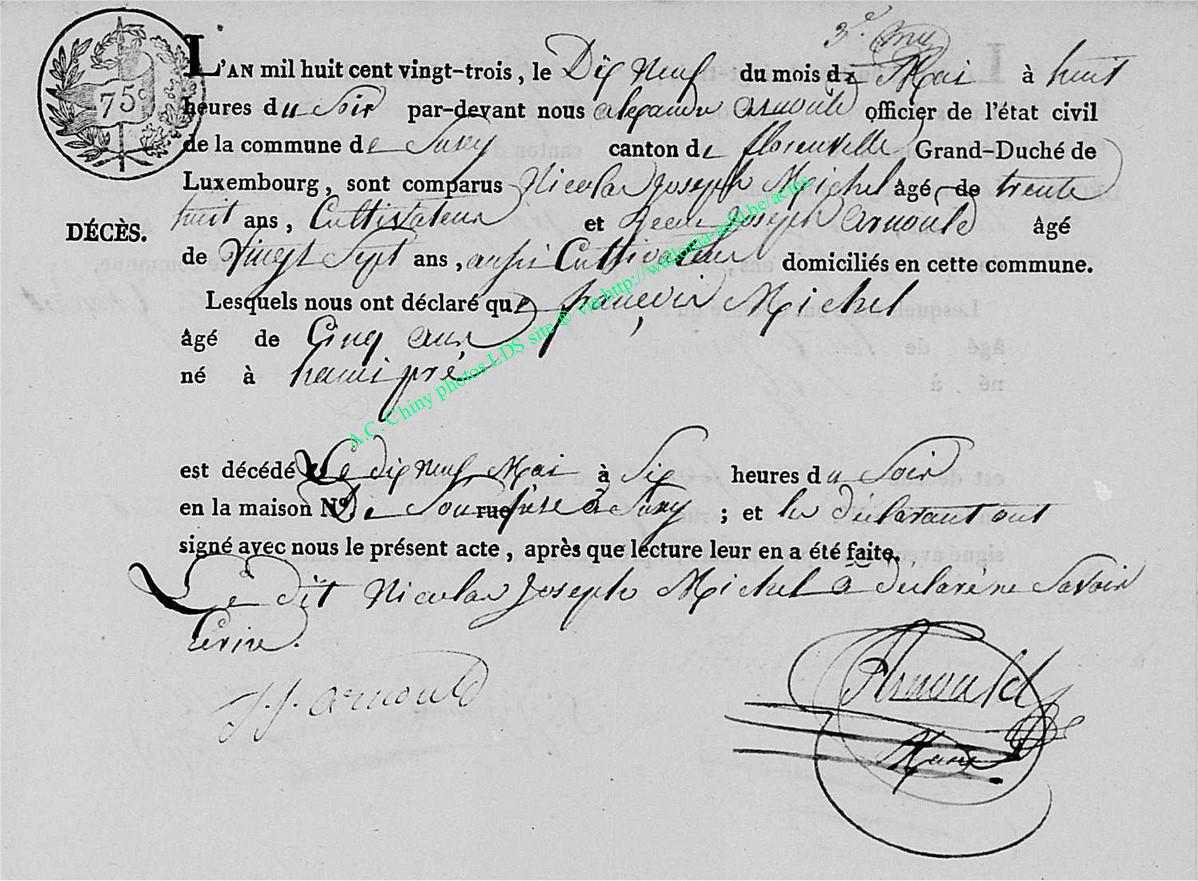 75c
L'AN mil huit cent vingt-trois, le Dix neuf du mois de Mai à huit
heures du Soir par-devant nous alexandre arnould officier de l'état civil
de la commune de Suxy canton de florenville Grand-Duché de
Luxembourg, sont comparus Nicolas Joseph Michel âgé de trente
huit ans, Cultivateur et Jean Joseph arnould âgé
DÉCÈS.
de Vingt Sept ans, aussi Cultivateur domiciliés en cette commune.
Lesquels nous ont déclaré que françois Michel
âgé de Cinq ans,
né à hamipré
est décédé Le dix neuf Mai à Six heures du Soir
en la maison No de Son rue père à Suxy ; et les déclarant ont
signé avec nous le présent acte, après que lecture leur en a été faite.
Le dit Nicolas Joseph Michel a déclaré ne Savoir
Ecrire.
J. J. arnould
Arnould
A.C. Chiny photos LDS site @ via http://wallonia-asbl.be/actes